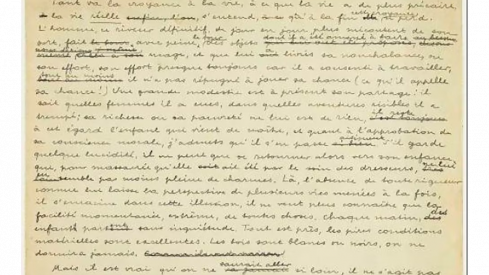 Tant va la croyance à la vie, à ce que la vie a de plus précaire,
la vie réelle s'entend, qu'à la fin se perd.
L'homme, ce rêveur définitif, de jour en jour plus mécontent de son
sort, fait le tour avec peine, des objets
usage, et que lui livrés sa nonchalance, ou
son effort, son effort presque toujours car il a consenti à travailler,
tout au moins il n'a pas répugné à jouer sa chance (ce qu'il appelle
sa chance!) Une grande modestie est à présent son partage : il
sait quelles femmes il a eues, dans quelles aventures risibles il a
trempé ; sa richesse ou sa pauvreté ne lui est de rien, il reste
à cet égard l'enfant qui vient de naître, et quant à l'approbation de
sa conscience morale, j'admets qu'il s'en passe aisément. S'il garde
quelque lucidité, il ne peut que se retourner alors vers son enfance
qui, pour massacrée qu'elle ait été par le soin des dresseurs, ne lui
en semble pas moins pleine de charmes. Là, l'absence de toute rigueur
connue lui laisse la perspective de plusieurs vies menées à la fois,
il s'enracine dans cette illusion, il ne veut plus connaître que la
facilité momentanée, extrême, de toutes choses. Chaque matin, des
enfants partent sans inquiétude. Tout est près, les pires conditions
matérielles sont excellentes. Les bois sont blancs ou noirs, on ne
dormira jamais.
Mais il est vrai qu'on ne saurait aller si loin, il ne s'agit pas